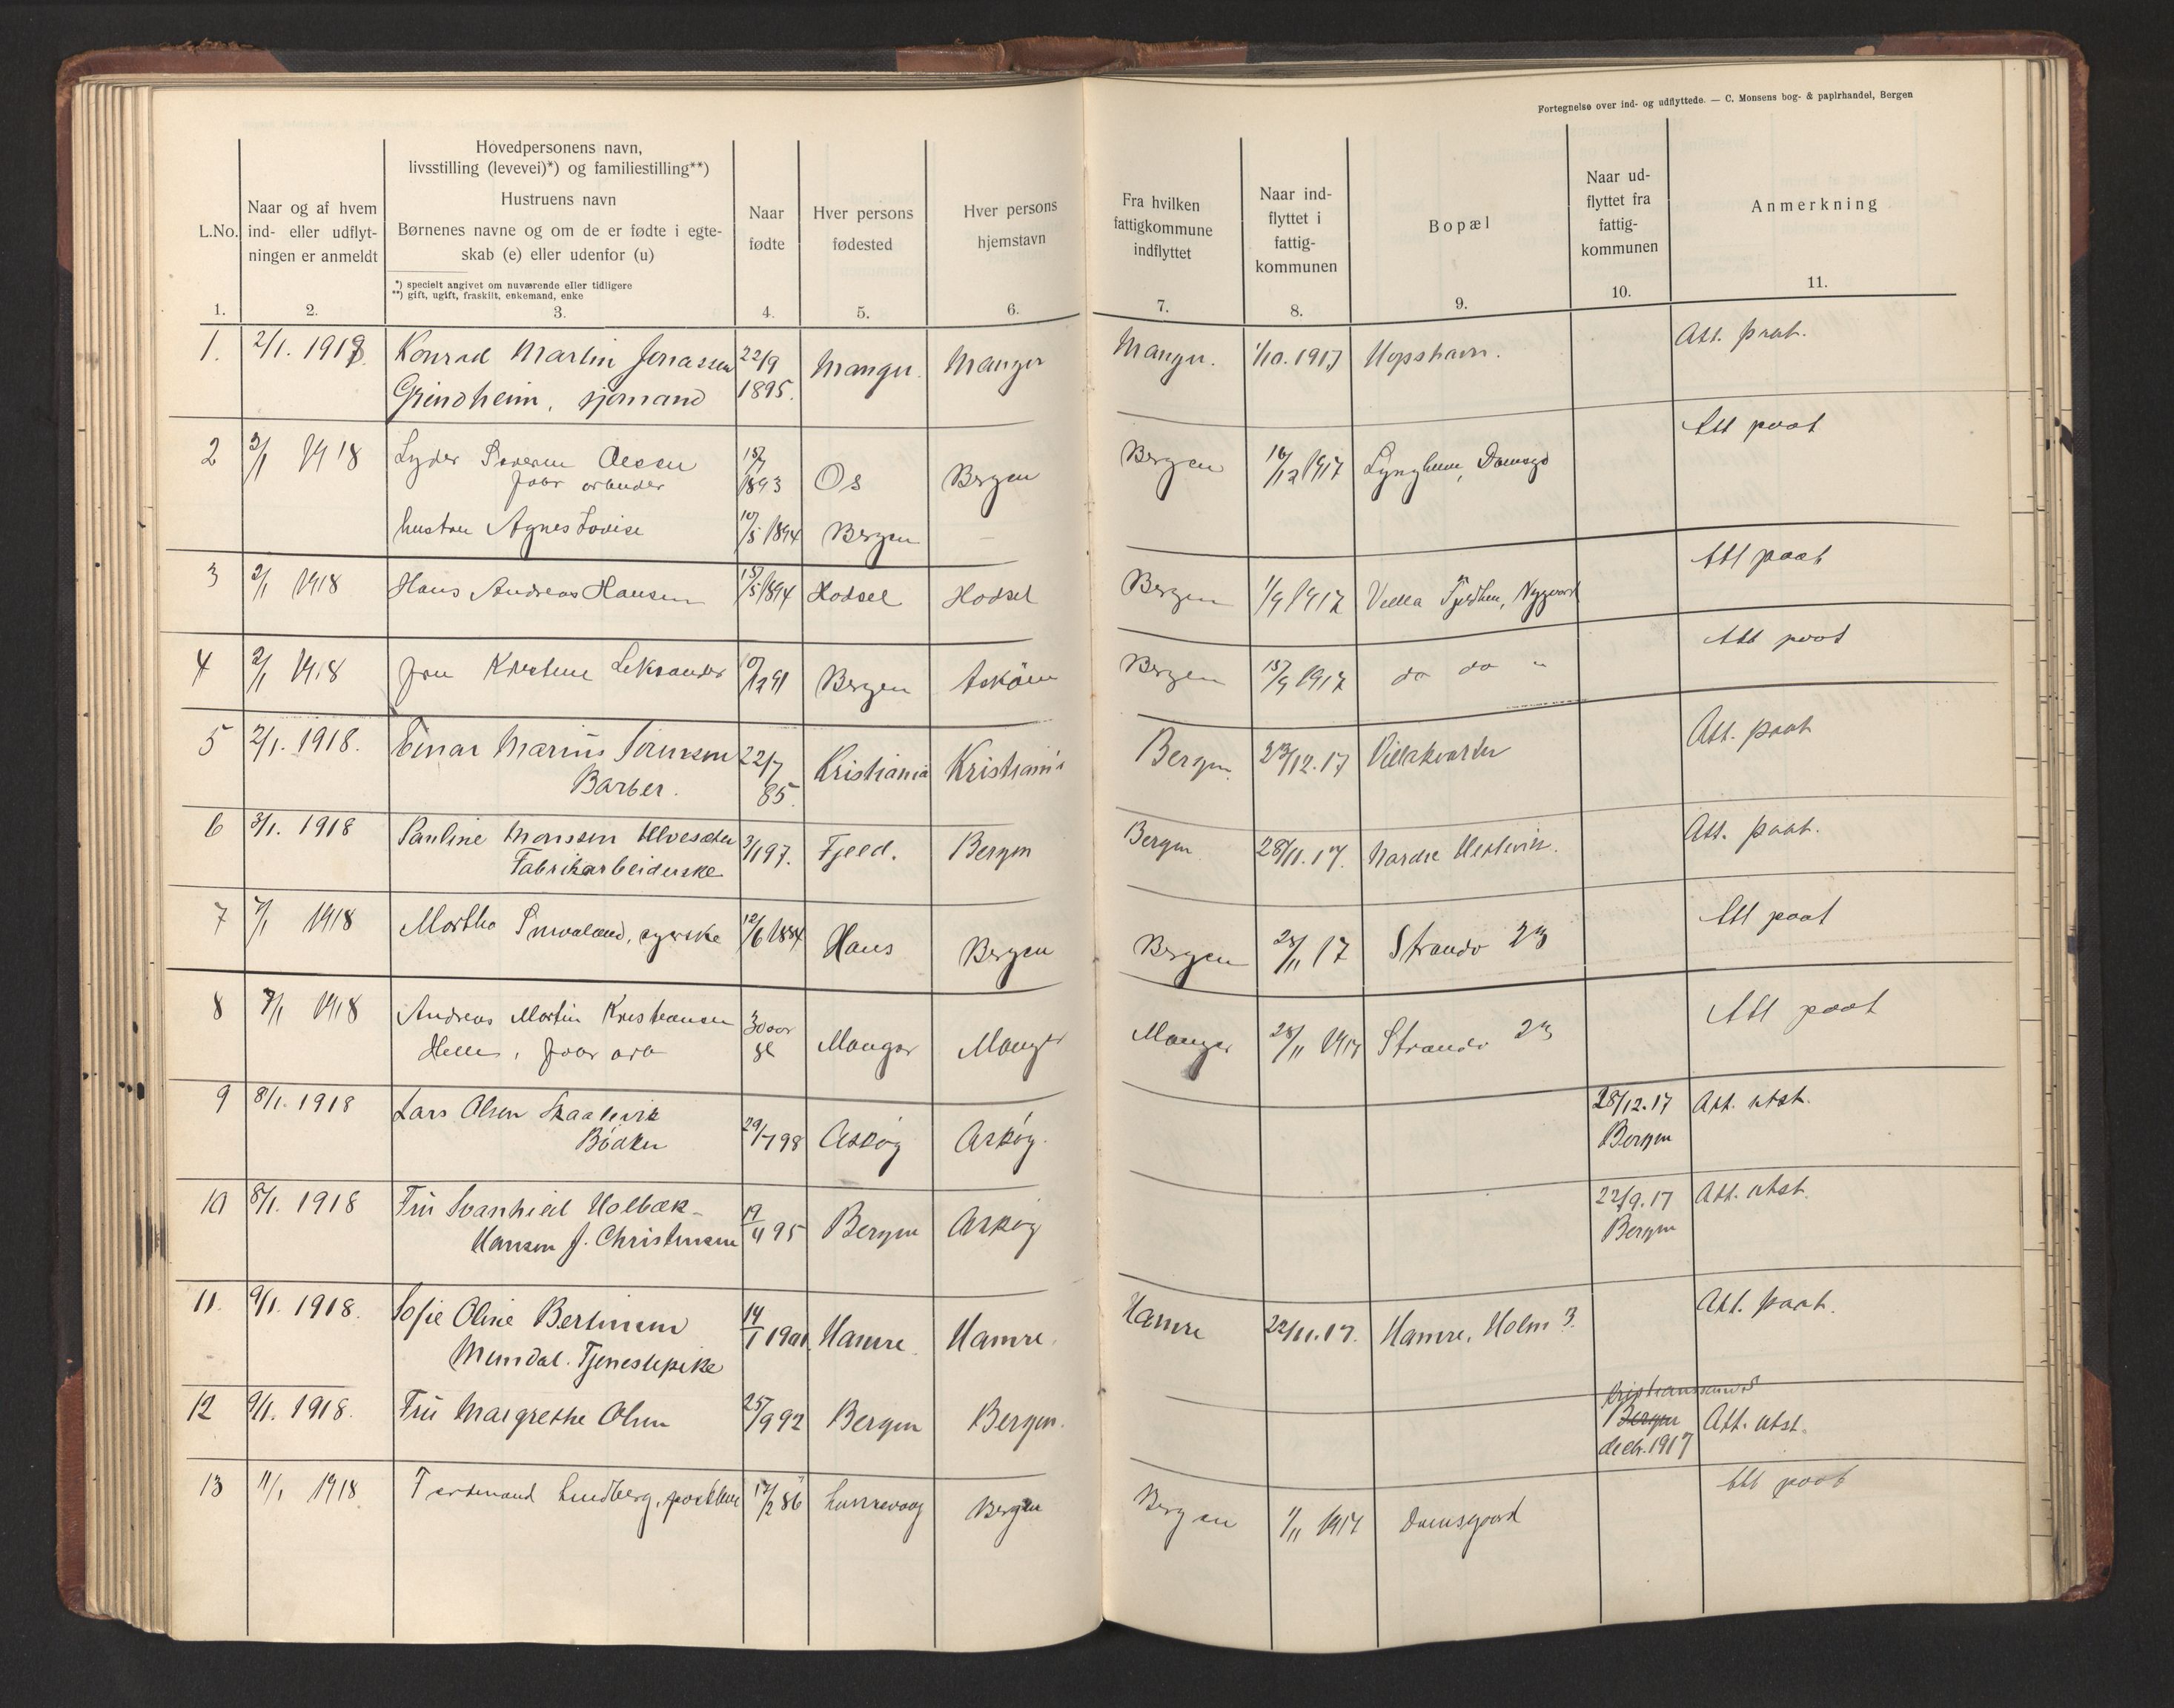 Fortegnelse over ind- og udflyttede. — C. Monsens bog- & papirhandel, Bergen
L.No.
Naar og af hvem
ind- eller udflyt-
ningen er anmeldt
Hovedpersonens navn,
livsstilling (levevei)*) og familiestilling**)
Hustruens navn
Børnenes navne og om de er fødte i egte-
skab (e) eller udenfor (u)
*) specielt angivet om nuværende eller tidligere
**) gift, ugift, fraskilt, enkemand, enke
Naar
fødte
Hver persons
fødested
Hver persons
hjemstavn
Fra hvilken
fattigkommune
indflyttet
Naar ind-
flyttet i
fattig-
kommunen
Bopæl
Naar ud-
flyttet fra
fattig-
kommunen
Anmerkning
1. 2. 3. 4. 5. 6. 7. 8. 9. 10. 11.
1. 2/1. 1918 Konrad Martin Jonassen 22/9 Manger. Manger Manger. 1/10. 1917 Hopshavn. Att. paat.
Grindheim, sjømand 1895.
2 2/1 1918 Lyder Severin Olsen 15/7 1893 Os Bergen Bergen 16/12 1917 Lyngheim, Damsgd Att paat
hustru Agnes Lovise 10/5 1894 Bergen –
3 2/1 1918 Hans Andreas Hansen 15/5 1894 Hadsel Hadsel Bergen 1/9 1917 Villa Nygaard Att paat
4 2/1 1918 Bergen Askøen Bergen 15/9 1917 do do " Att paat
5 2/1. 1918. Einar Marius 22/7 Kristiania Kristiania Bergen 23/12.17 Villakvarter Att. paat
Barber. 85.
6 3/1. 1918 Pauline Monssen 97. Fjeld. Bergen Bergen 28/11.17. Nordre Hestevik. Att. paat.
Fabrikarbeiderske
7 7/1 1918 Martha syerske 12/6 1884 Haus Bergen Bergen 28/11 17 Strandv 23 Att paat
8 7/1 1918 Andreas Martin Kristiansen 30 aar Manger Manger Manger 28/11 1917 Strandv 23 Att paat
Helle, gl
9 8/1. 1918 Lars Olsen Skaalevik 98 Askøy Askøy. 28/12.17 Att. utst.
Bødker Bergen
10 8/1. 1918 Frū Svanhild Holbæk- 19/11 95 Bergen Askøy 22/9.17 Att. utst.
Hansen f. Christensen Bergen
11. 9/1. 1918. Sofie Oline Bertinsen 14/1 1901. Hamre. Hamre. Hamre 22/11.17. Hamre, Holm 3. Att. paat.
Mundal. Tjenestepike
Kristianssund
12 9/1. 1918. Frū Margrethe Olsen 25/9 92 Bergen Bergen. Bergen Att. utst.
decbr. 1917
13 11/1 1918 Ferdinand Lindberg, 17/2 86 Bergen Bergen 1/11 1917 Damsgaard Att paat